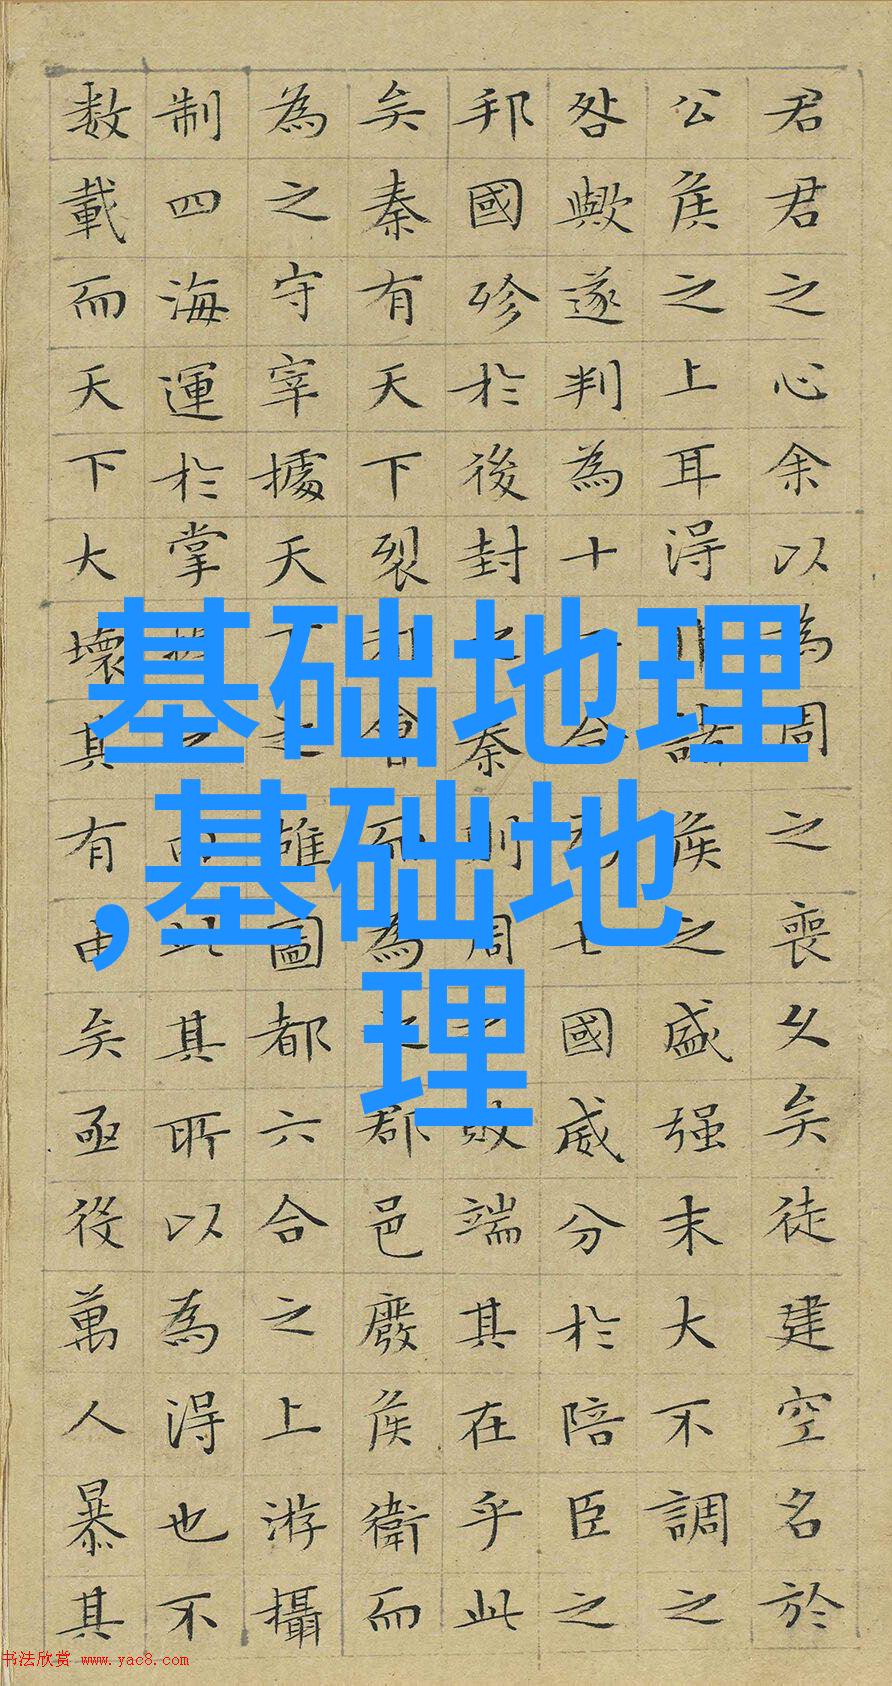 君君之心余以為周之喪久矣徒建空名於
公侯之上耳得諸侯之盛强末大不調之
咎歟遂判為十合七國威分於陪臣之
邦國殄於後封秦則周敗端其在乎此
矣秦有天下裂會而為郡邑廢侯衛而
為之守宰據天下之雄圖都六合之上游攝
制四海運於掌此其所以為得也不
数載而天下大壞其有由矣亟役萬人暴其
基础地理
,基础地
理
书法欣赏 www.yac8.com